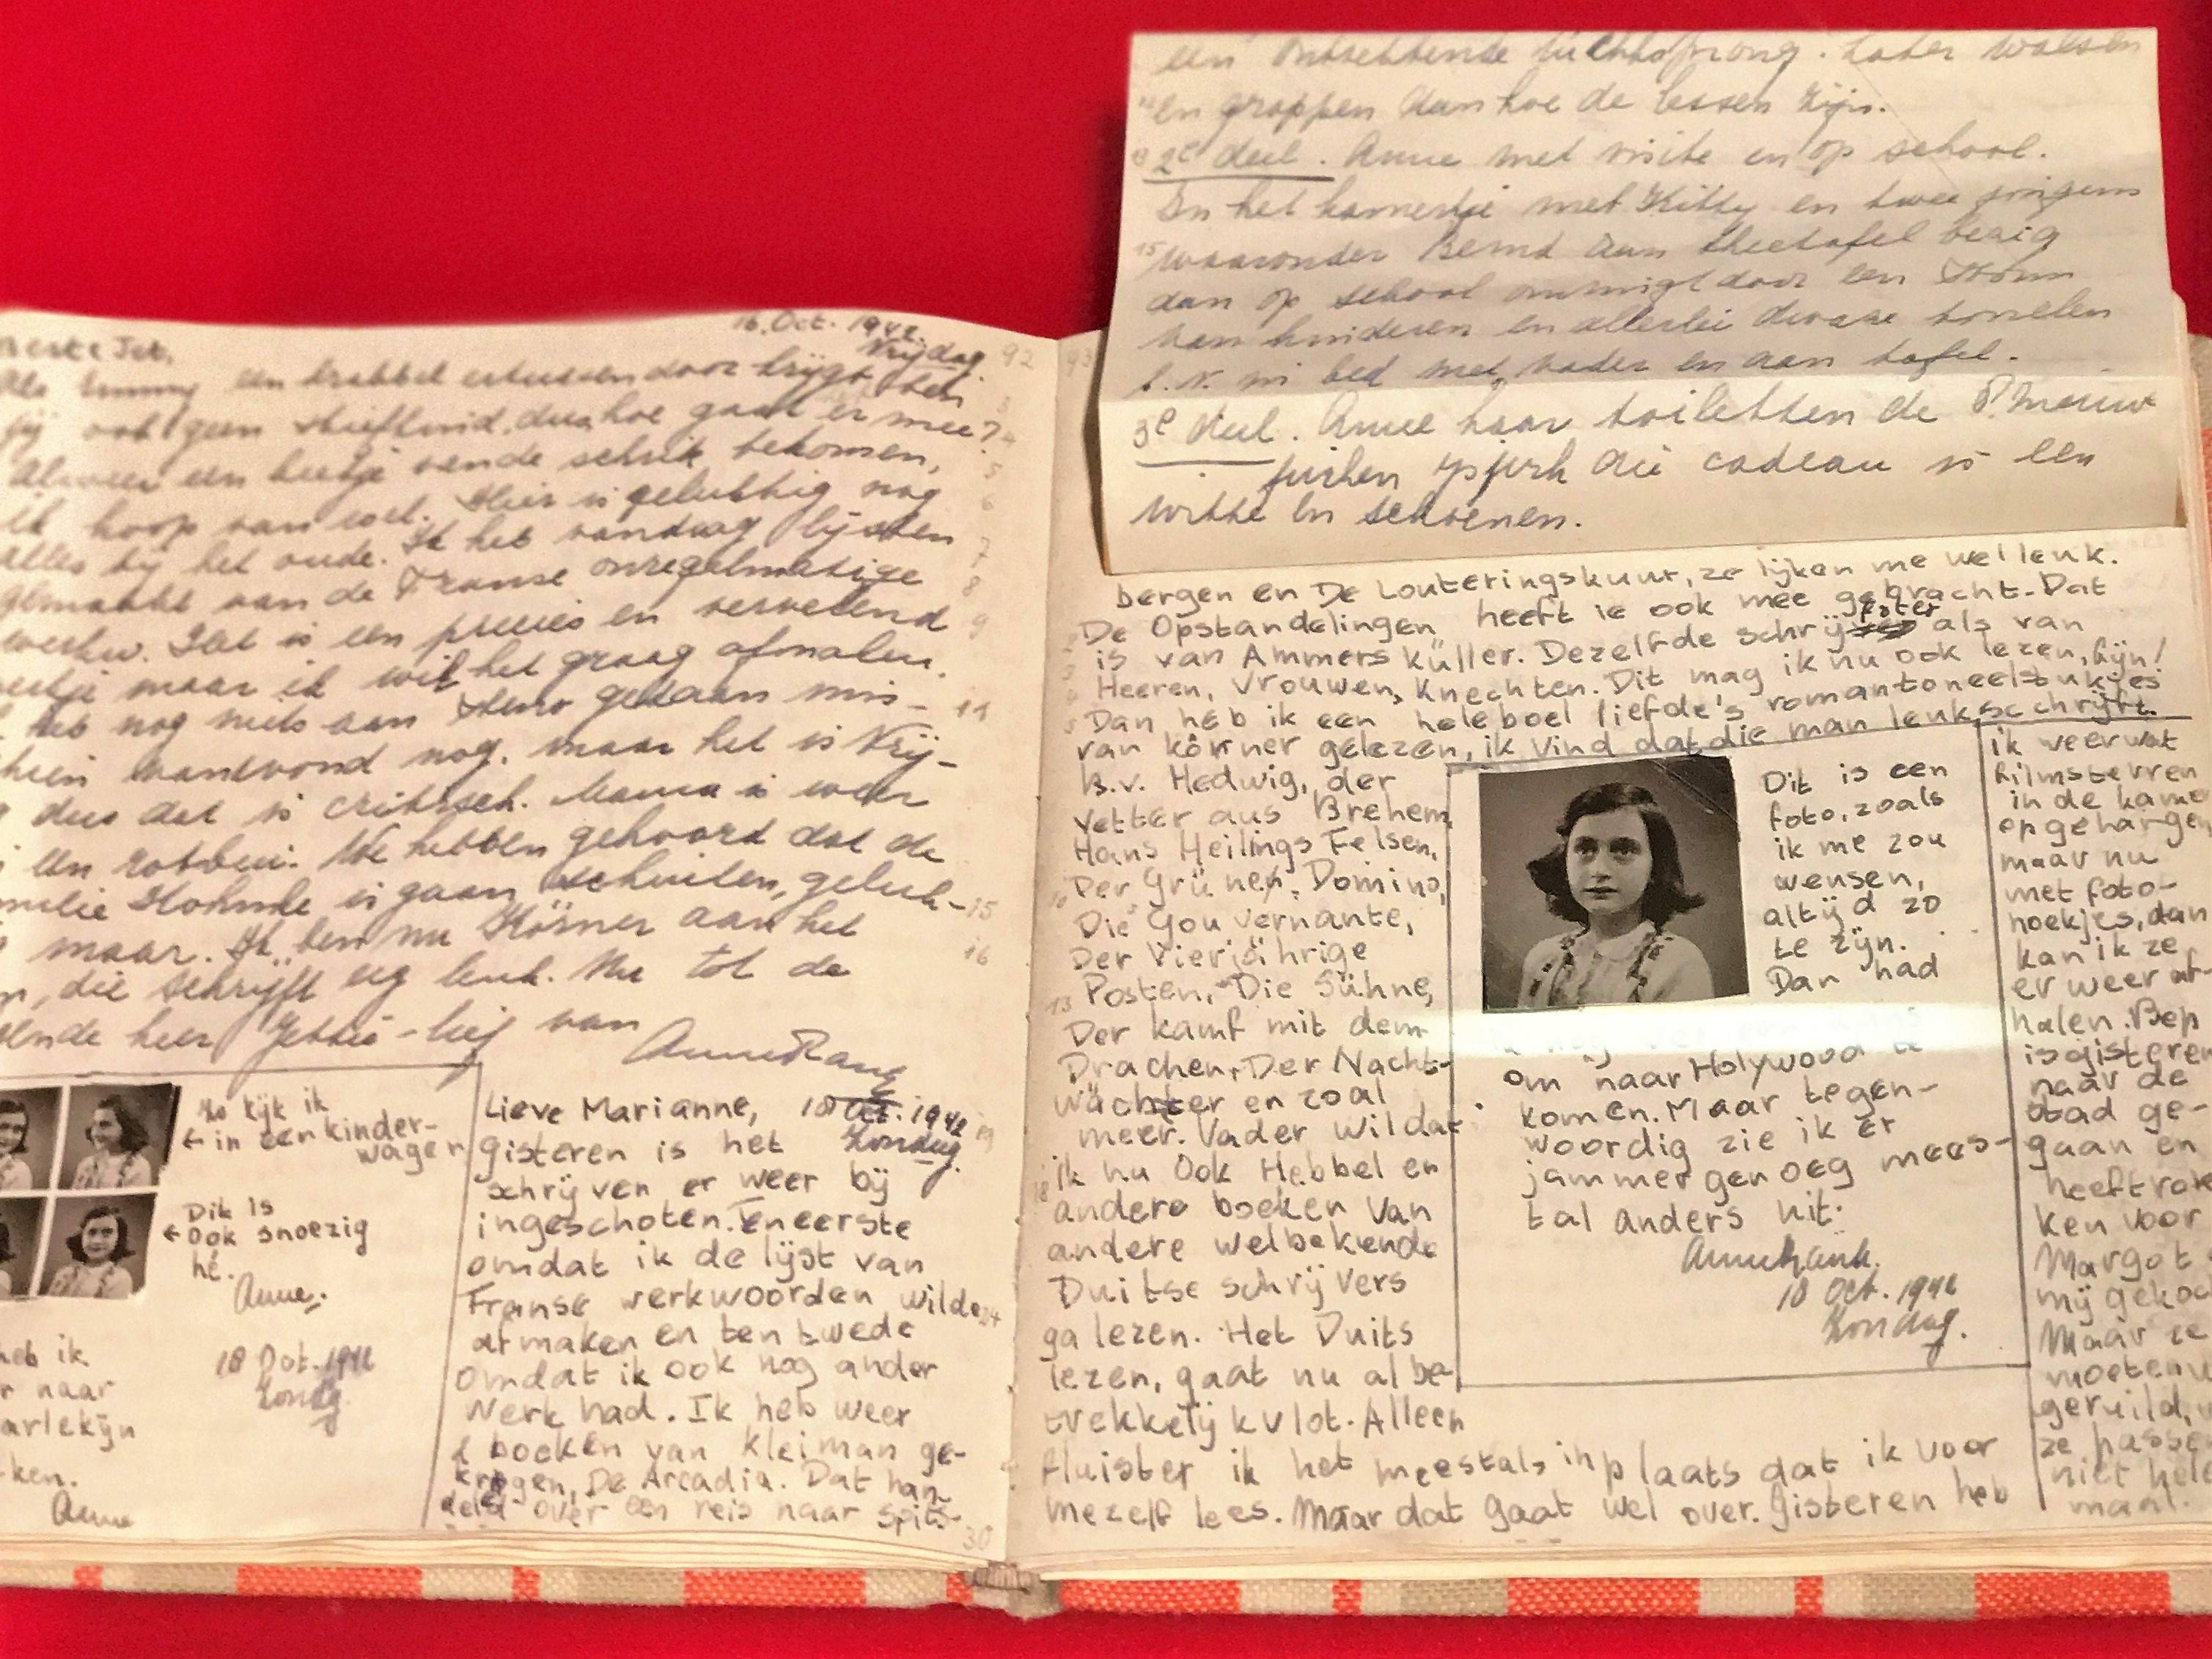 16. Oct. 1942.
Vrijdag
92
een krabbel ertussendoor krijgt, ben
jij ook geen stiefkind, dus hoe gaat er mee?
alweer een beetje van de schrik bekomen,
ik hoop van wel. Hier is gelukkig nog
alles bij het oude. Ik heb vandaag lijsten
gemaakt van de Franse onregelmatige
werkw. Het is een precies en vervelend
maar ik wil het graag afmaken.
heb nog niets aan Steno gedaan mis-
vanavond nog, maar het is Vrij-
dus dat is critisch. Mama is weer
We hebben gehoord dat de
is gaan schuilen, geluk-
maar. Ik ben nu Körner aan het
die schrijft erg leuk. Nu tot de
keer Jettie-lief van
Anne Frank
Zo kijk ik
← in een kinder-
wagen
Dit is
← Ook snoezig
hè.
Anne.
heb ik
naar
arlekijn
ken.
Anne
18 Oct. 1942
Zondag.
Lieve Marianne, 18 Oct. 1942
Zondag.
gisteren is het
schrijven er weer bij
ingeschoten. Ten eerste
omdat ik de lijst van
Franse werkwoorden wilde
afmaken en ten twede
omdat ik ook nog ander
werk had. Ik heb weer
2 boeken van Kleiman ge-
kregen, De Arcadia. Dat han-
deld over een reis naar Spits-
30
een ontzettende luchtsprong. Later walsen
en grappen dan hoe de lessen zijn.
2e deel. Anne met visite en op school.
In het kamertje met Kitty en twee jongens
waaronder Bernd aan theetafel bezig
dan op school omringt door een
van kinderen en allerlei dwaze
b.v. in bed met vader en aan tafel.
3e deel. Anne haar toiletten de 8 nieuwe
jurken cadeau is een
witte en schoenen.
93
bergen en De Louteringskuur, ze lijken me wel leuk.
De Opstandelingen heeft ie ook mee gebracht. Dat
is van Ammers Küller. Dezelfde schrijfster als van
Heeren, Vrouwen, Knechten. Dit mag ik nu ook lezen, fijn!
Dan heb ik een heleboel liefde's romantoneelstukjes
van körner gelezen, ik vind dat die man leuk schrijft.
B.v. Hedwig, der
Vetter aus Brehem,
Hans Heilings Felsen,
Der Grüne, Domino,
Die Gouvernante,
Der Vierjährige
Posten, Die Sühne,
Der kamf mit dem
Drachen, Der Nacht-
wächter en zoal
meer. Vader wil dat
ik nu ook Hebbel en
andere boeken van
andere welbekende
Duitse schrijvers
ga lezen. Het Duits
lezen, gaat nu al be-
trekkelijk vlot. Alleen
fluister ik het meestals inplaats dat ik voor
mezelf lees. Maar dat gaat wel over. Gisteren heb
Dit is een
foto, zoals
ik me zou
wensen,
altijd zo
te zijn.
Dan had
om naar Holywood te
komen. Maar tegen-
woordig zie ik er
jammer genoeg mees-
tal anders uit.
Anne Frank.
18 Oct. 1942
Zondag.
ik veer wat
filmsterren
in de kamer
opgehangen
maar nu
met foto-
hoekjes, dan
kan ik ze
er weer af-
halen. Bep
is gisteren
naar de
stad ge-
gaan en
heeft rok
ken voor
Margot
mij gekoc
Maar ze
moeten
geruild,
ze passe
niet hele
maal.